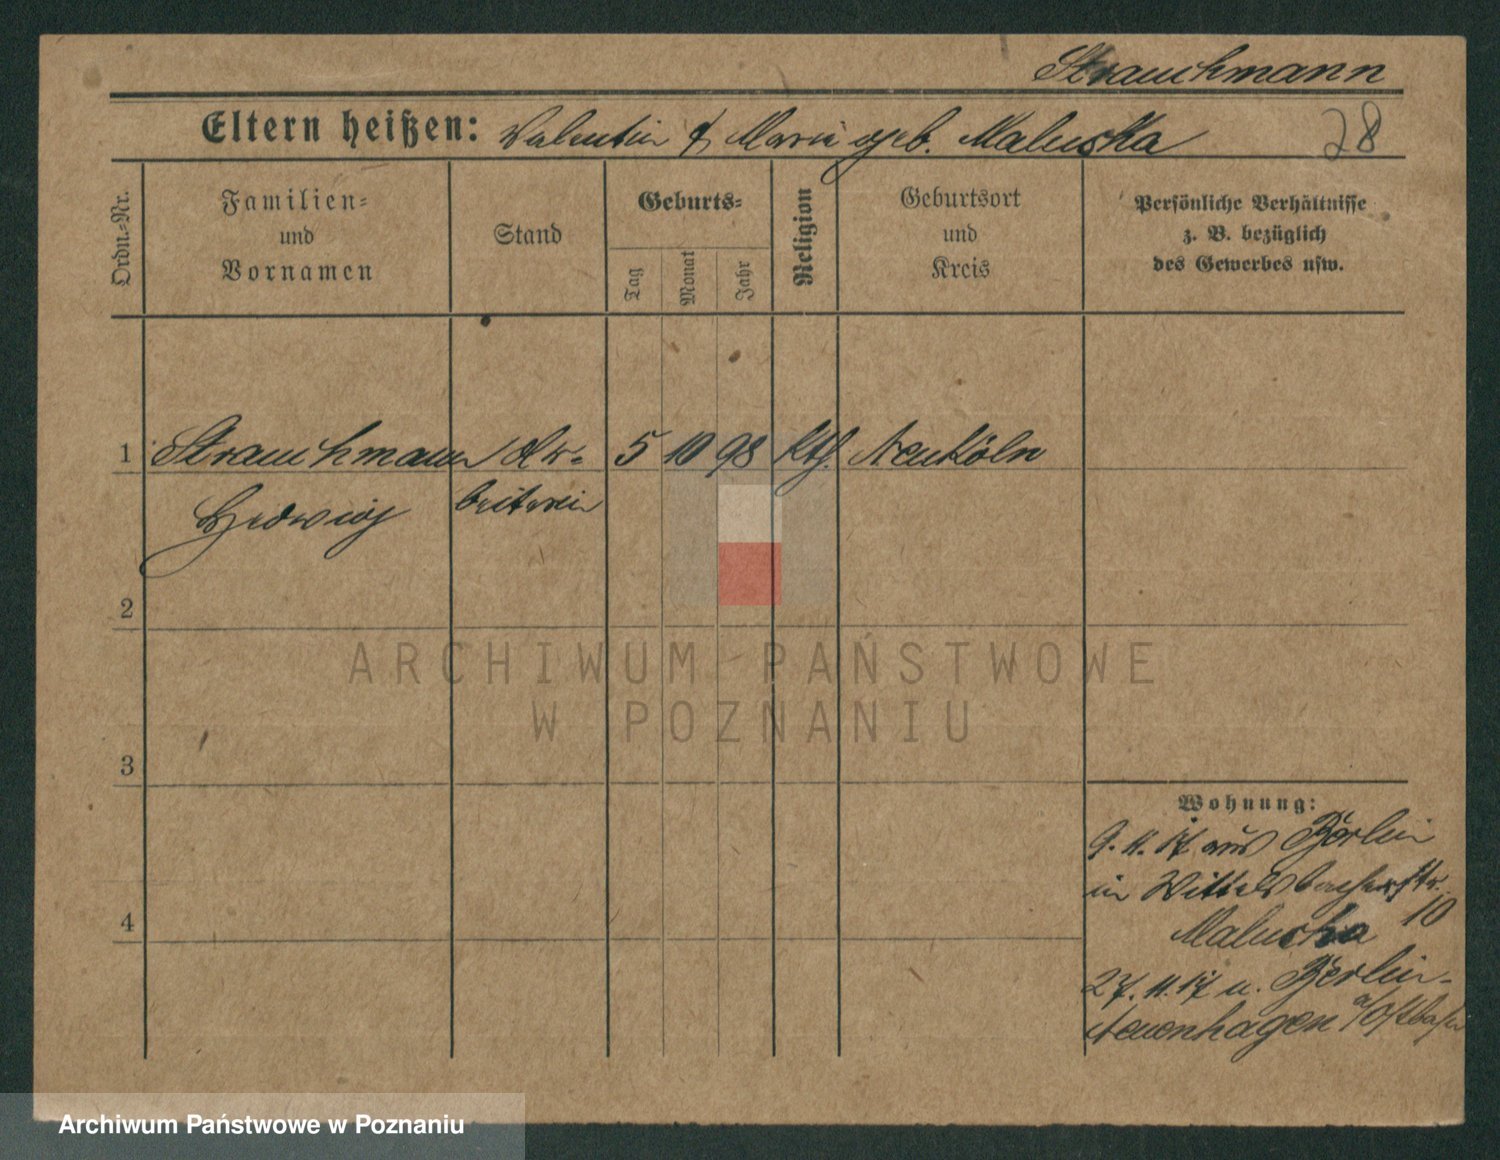 Strauchmann
Eltern heißen: Valentin & Marie geb. Maluska
28
Ordn.-Nr.
Familien-
und
Vornamen
Stand
Geburts-
Tag
Monat
Jahr
Religion
Geburtsort
und
Kreis
Persönliche Verhältnisse
z. B. bezüglich
des Gewerbes usw.
1 Strauchmann Ar- 5 10 98 kth. Neukölln
Hedwig beiterin
2
ARCHIWUM PAŃSTWOWE
W POZNANIU
3
Wohnung:
9. 11. 17 aus Berlin
in Wittelsbacherstr.
10
4
Maluska
27. 11. 17 n. Berlin-
Neuenhagen a/Ostbahn
Archiwum Państwowe w Poznaniu